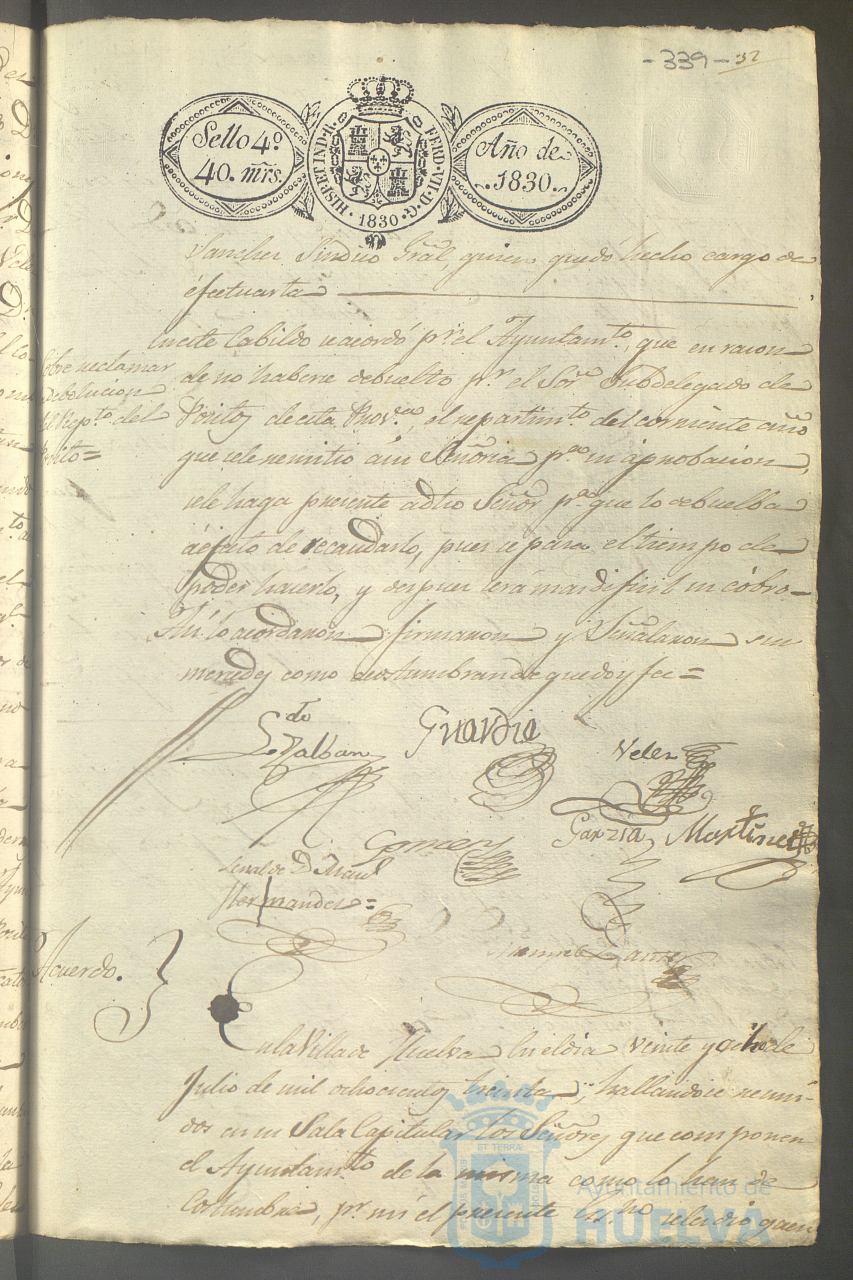 -339- 32
Sello 4º
40. mrs.
HISP. ET IND. R. FERD. VII. D. G.
1830
Año de
1830.
Sanchez Sindico Gral, quien quedó hecho cargo de
efectuarla
En este Cabildo se acordó pr. el Ayuntamto, que en razon
de no haberse debuelto pr. el Sor. Subdelegado de
Positos de esta Prova, el repartimto del corriente año
que se le remitio á su Señoria pa. su aprobacion,
se le haga presente á dho Señor pa. que lo debuelba
á efecto de recaudarlo, pues se pasa el tiempo de
poder hacerlo, y despues será mas dificil su cobro
Sobre reclamar
debolucion
del Repto del
Posito=
Asi lo acordaron firmaron y Señalaron sus
mercedes como acostumbran de que doy fee=
Ldo
Talban
Guardia
Velez
Gomez
Garzia
Martinez
Señal de D. Man.l
Hernandez=
Acuerdo.
En la Villa de Huelva en el dia veinte y ocho de
Julio de mil ochocientos treinta, hallandose reuni-
dos en su Sala Capitular los Señores que componen
el Ayuntamto de la misma como lo han de
Costumbre, pr. mi el presente Essno se le dió
ET TERRÆ
Ayuntamiento de
HUELVA